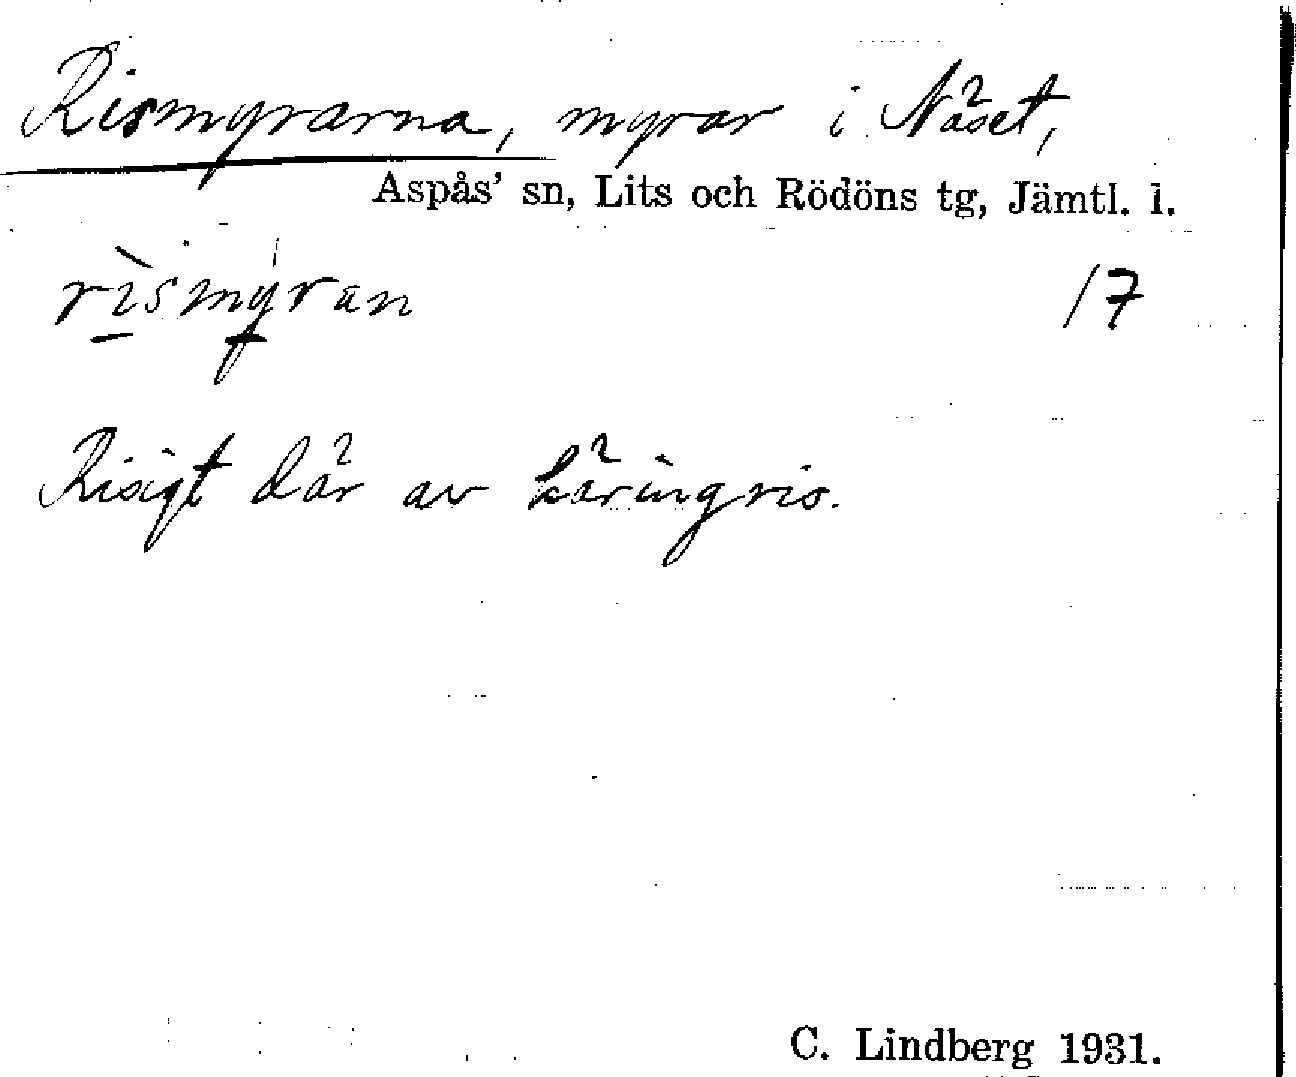 Rismyrarna, myrar i Näset,
Aspås' sn, Lits och Rödöns tg, Jämtl. l.
rìsmyran 17
Risigt där av käringris.
C. Lindberg 1931.